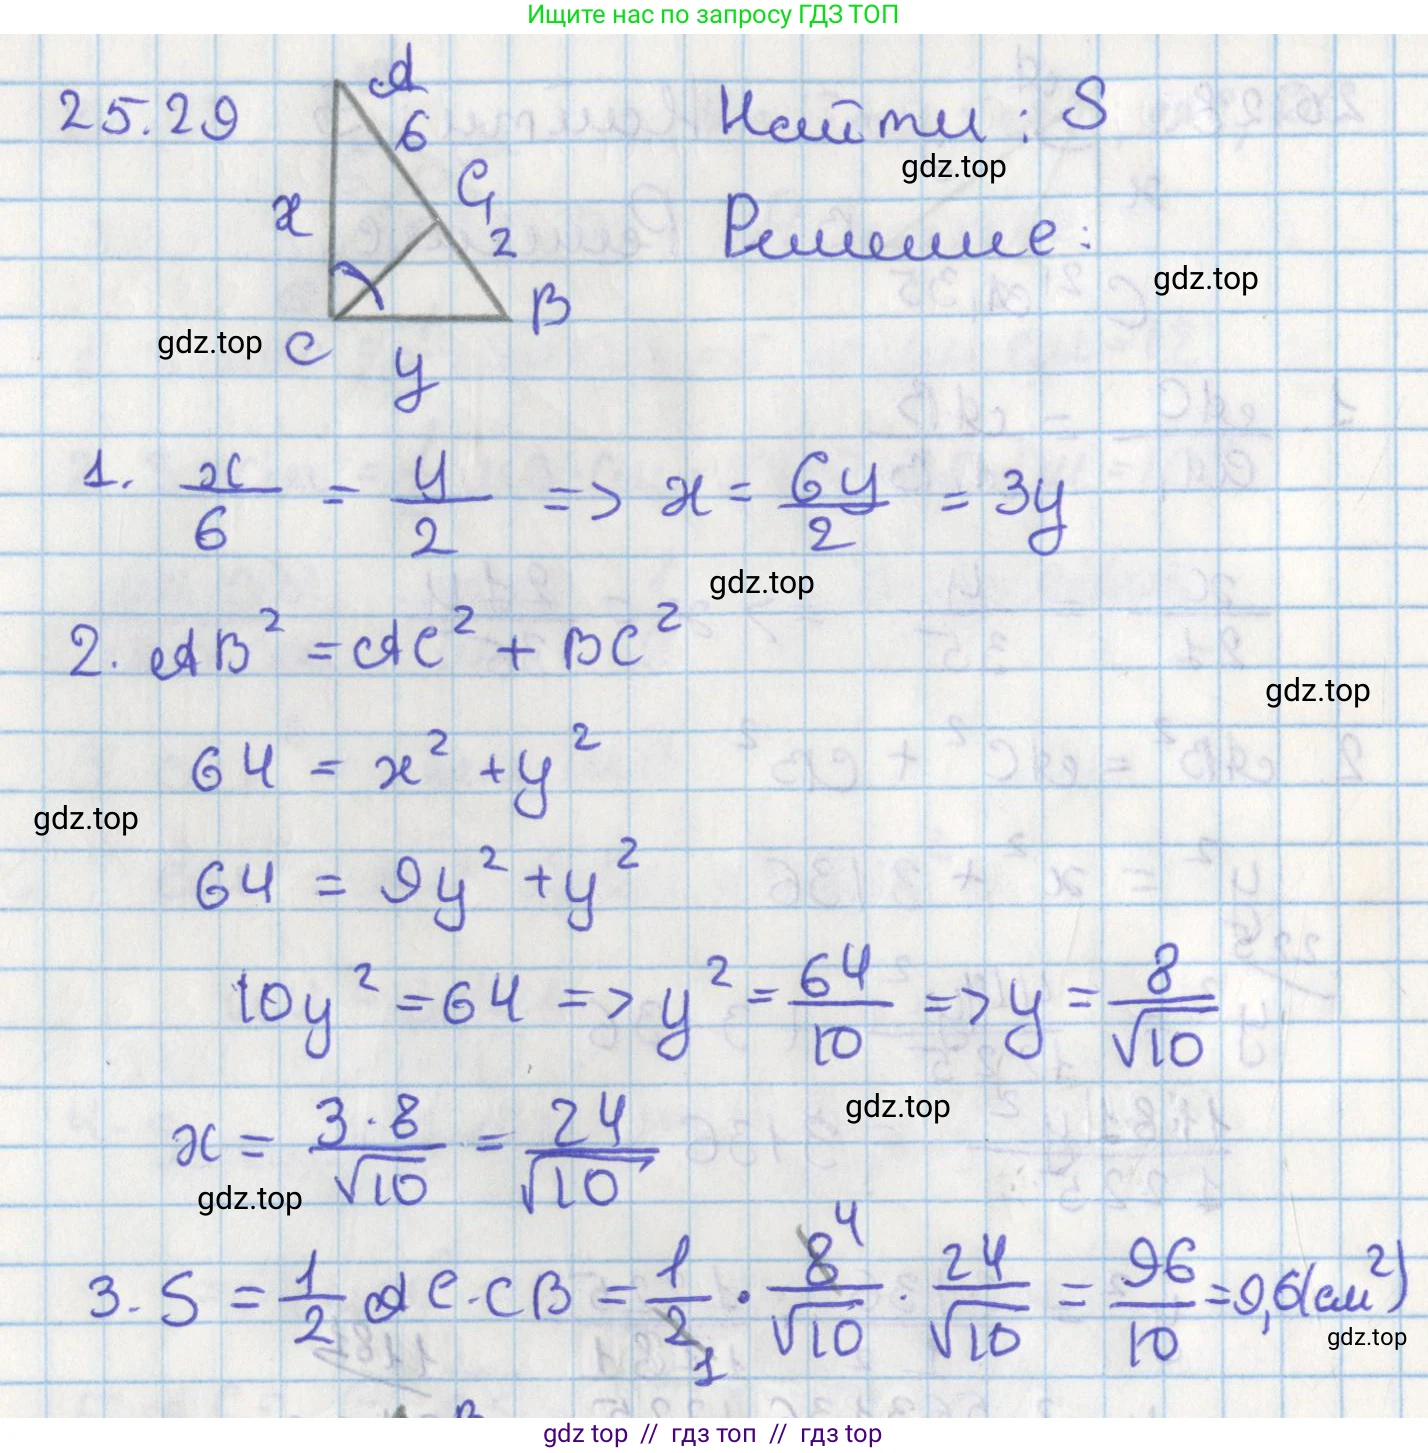 Ищите нас по запросу ГДЗ ТОП
25.29
A
6
C₁
2
x
B
C
y
Найти: S
gdz.top
Решение:
gdz.top
gdz.top
1. x/6 = y/2 => x = 6y/2 = 3y
gdz.top
2. AB² = AC² + BC²
gdz.top
64 = x² + y²
gdz.top
64 = 9y² + y²
10y² = 64 => y² = 64/10 => y = 8/√10
gdz.top
x = 3·8/√10 = 24/√10
gdz.top
3. S = 1/2 AC·CB = 1/2 · 8/√10 · 24/√10 = 96/10 = 9,6(см²)
4
1
gdz.top
B
gdz top // гдз топ // гдз top